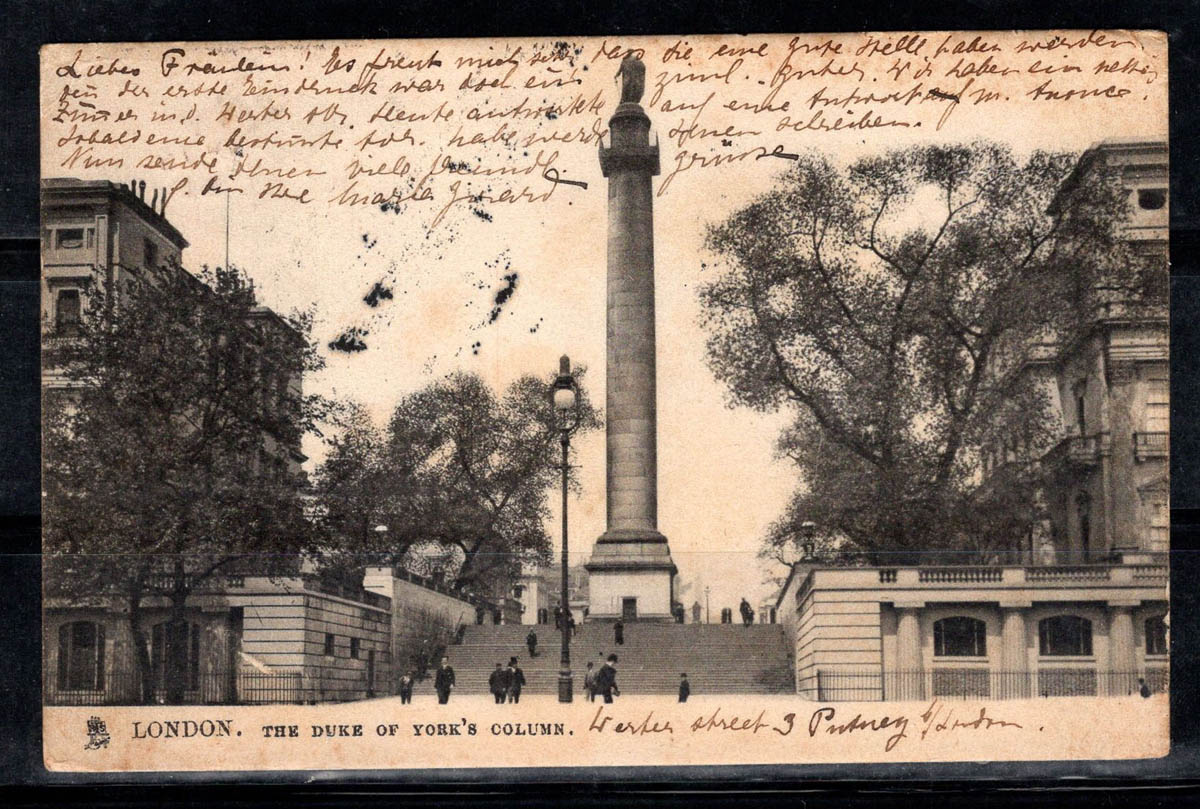 Liebes Fräulein! Es freut mich sehr dass Sie eine gute Stelle haben werden
der erste Eindruck war doch ein guter. Wir haben ein nettes
Zimmer in d. Werter str. Heute antwortete auf eine Antwort m. Annonce.
bestimmte habe werde Ihnen schreiben.
Nun sende Ihnen viele freundl. grüsse
Ihre Marie
LONDON. THE DUKE OF YORK'S COLUMN. Werter street 3 Putney b/London.